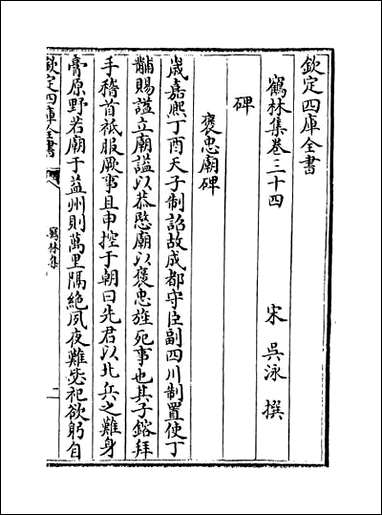 欽定四庫全書
鶴林集卷三十四
宋 吳泳 撰
碑
褒忠廟碑
歳嘉熙丁酉天子制詔故成都守臣副四川制置使丁
黼賜諡立廟諡以恭愍廟以褒忠旌死事也其子鎔拜
手稽首祗服厥事且申控于朝曰先君以北兵之難身
膏原野若廟于益州則萬里隔絶夙夜難毖祀欲躬自
欽定四庫全書
鶴林集
一